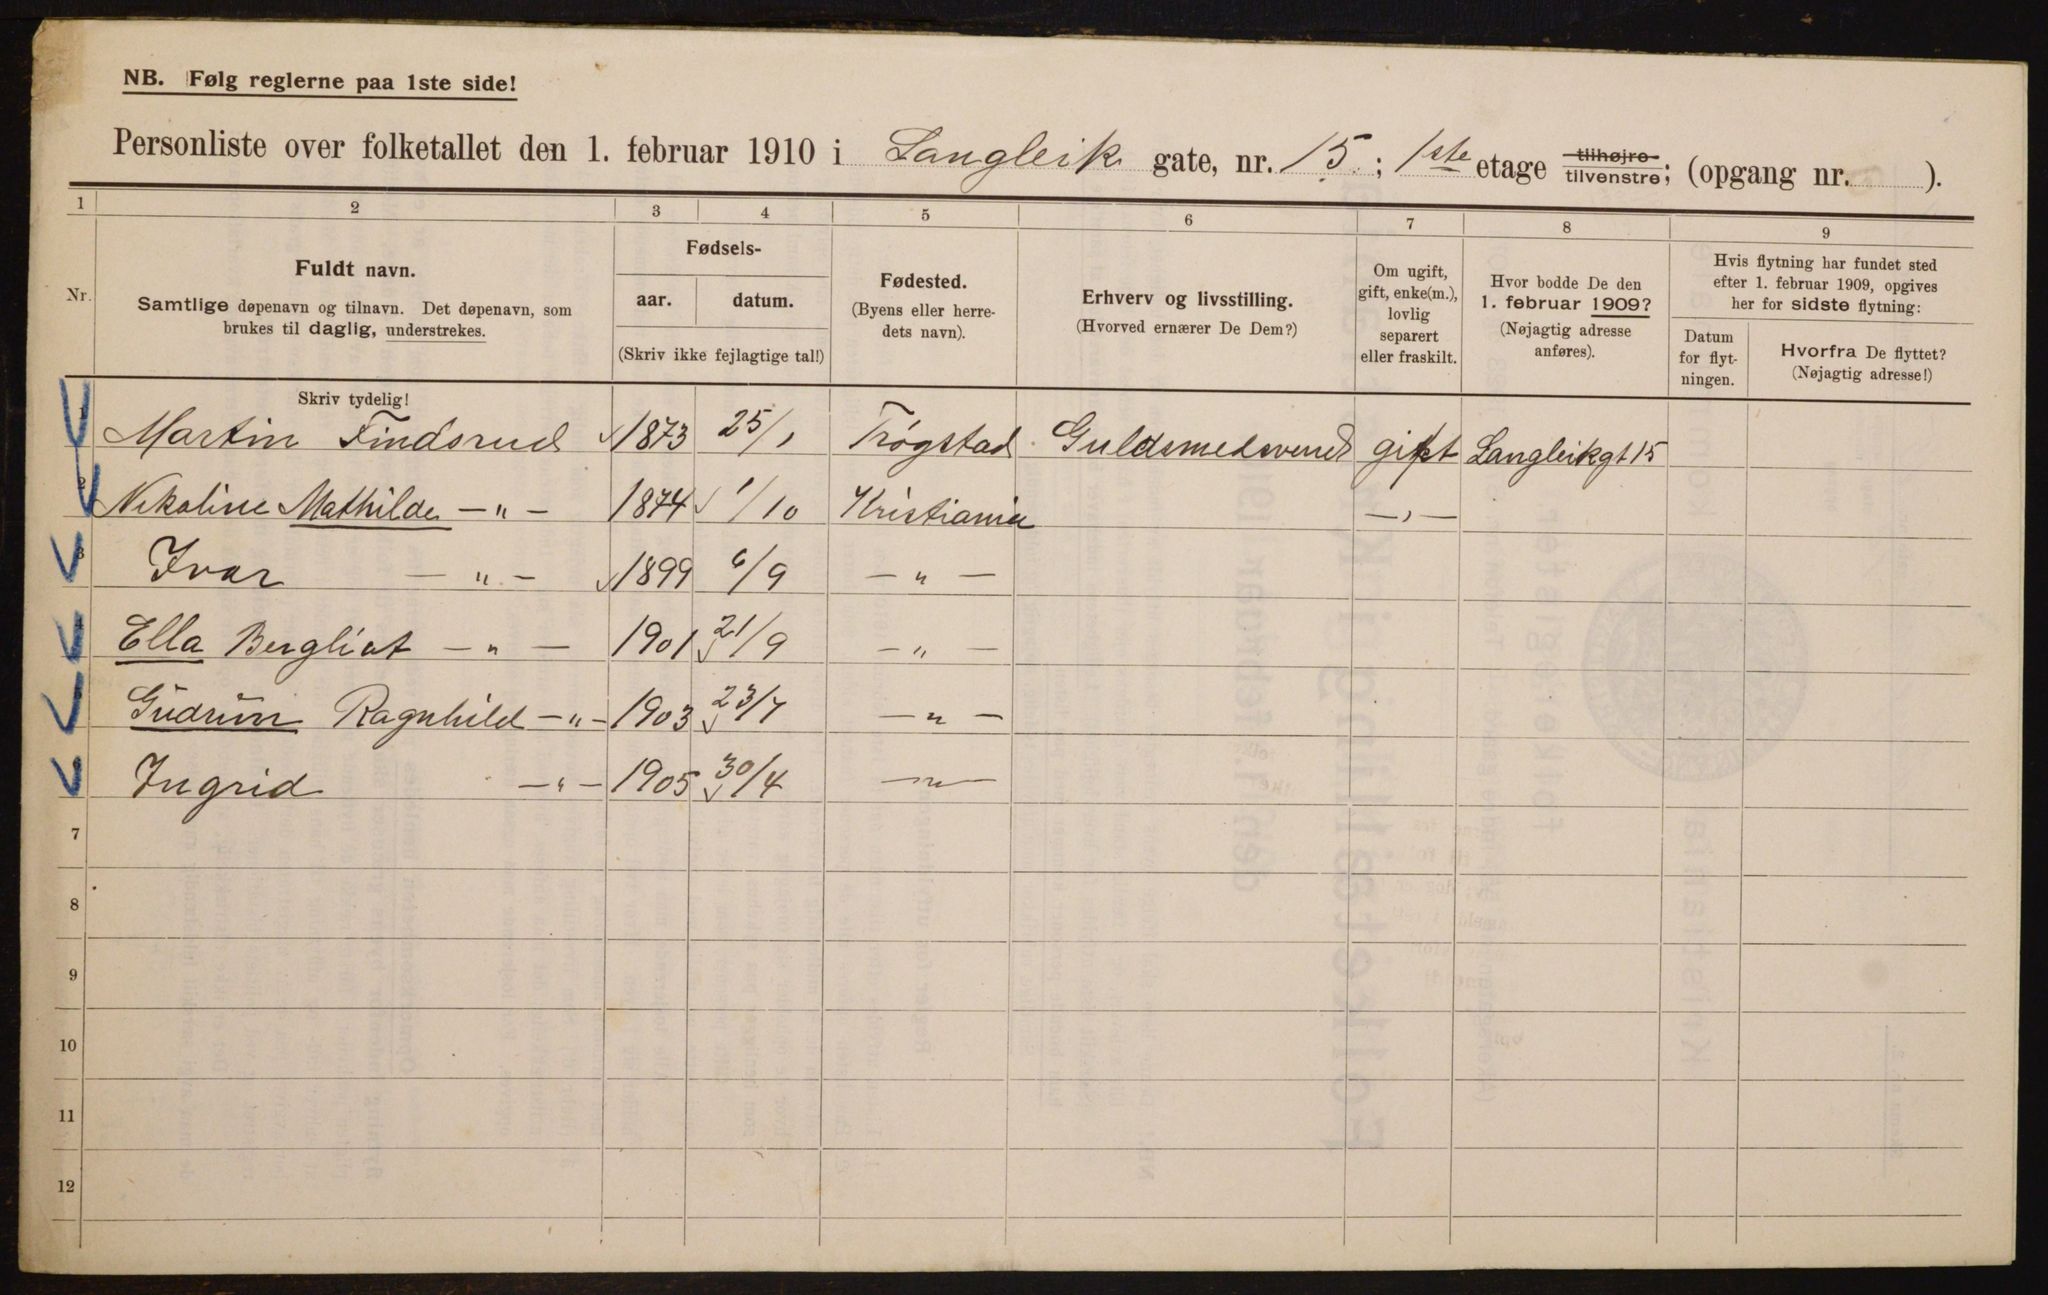 NB. Følg reglerne paa 1ste side!
Personliste over folketallet den 1. februar 1910 i Langleik gate, nr. 15; 1ste etage tilhøjre tilvenstre; (opgang nr. ).
1 2 3 4 5 6 7 8 9
Nr.
Fuldt navn.
Samtlige døpenavn og tilnavn. Det døpenavn, som
brukes til daglig, understrekes.
Fødsels-
aar. datum.
(Skriv ikke fejlagtige tal!)
Fødested.
(Byens eller herre-
dets navn).
Erhverv og livsstilling.
(Hvorved ernærer De Dem?)
Om ugift,
gift, enke(m.),
lovlig
separert
eller fraskilt.
Hvor bodde De den
1. februar 1909?
(Nøjagtig adresse
anføres).
Hvis flytning har fundet sted
efter 1. februar 1909, opgives
her for sidste flytning:
Datum
for flyt-
ningen.
Hvorfra De flyttet?
(Nøjagtig adresse!)
Skriv tydelig!
1 Martin Findsrud 1873 25/1 Trøgstad Guldsmedsvend gift Langleikgt 15
2 Nikoline Mathilde -"- 1874 1/10 Kristiania -"-
3 Ivar -"- 1899 6/9 -"-
4 Ella Bergliot -"- 1901 21/9 -"-
5 Gudrun Ragnhild -"- 1903 23/7 -"-
6 Ingrid -"- 1905 30/4 -"-
7
8
9
10
11
12